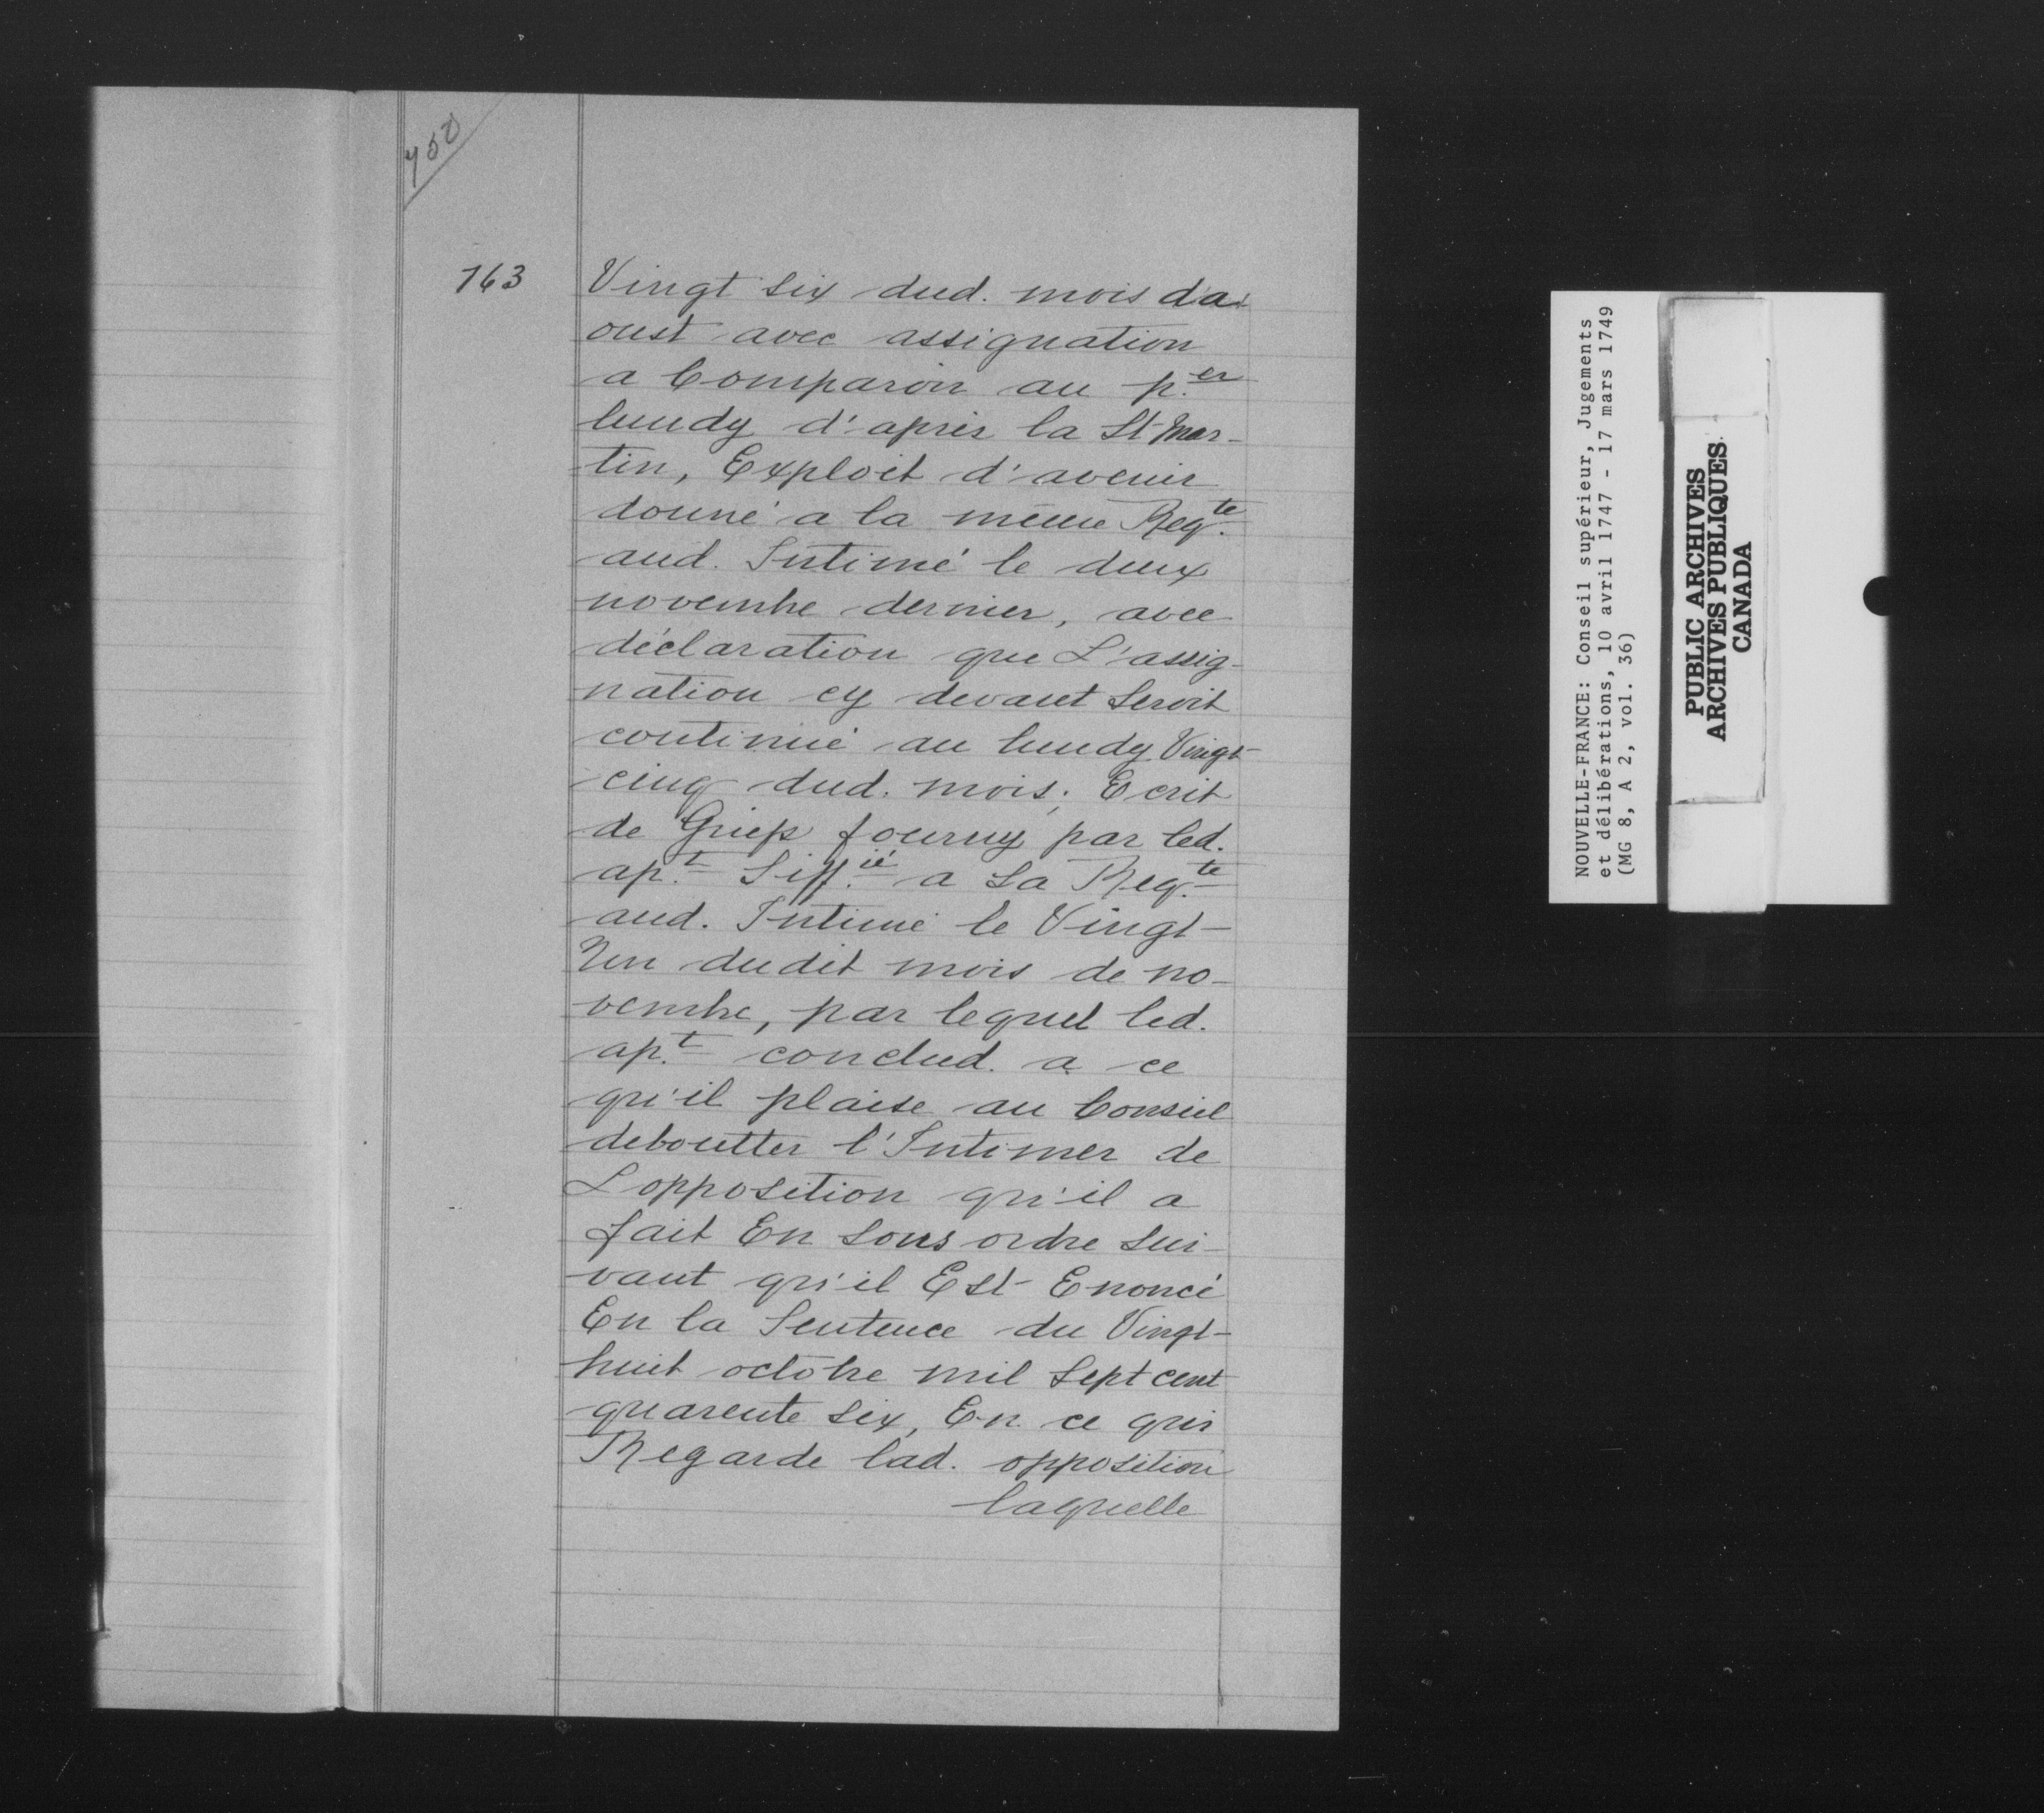 450
163
Vingt Six dud. mois da
oust avec assignation
a Comparoir au p.er
lundy d'après la St Mar-
tin, Exploit d'avenir
donné a la même Reqte.
aud. Intimé le deux
novembre dernier, avec
déclaration que L'assig-
nation cy devant Seroit
continué au lundy Vingt-
cinq dud. mois; Ecrit
de Griefs fourny par led.
ap.t Siff.ié a Sa Reqte.
aud. Intimé le Vingt-
Un dudit mois de no-
vembre, par lequel led.
ap.t conclud. a ce
qu'il plaise au Conseil
deboutter l'Intimer de
L'opposition qu'il a
fait En Sous ordre Sui-
vant qu'il Est Enoncé
En la Sentence du Vingt-
huit octobre mil Sept cent
quarente Six, En ce qui
Regarde lad. opposition
laquelle
NOUVELLE-FRANCE: Conseil supérieur, Jugements
et délibérations, 10 avril 1747 - 17 mars 1749
(MG 8, A 2, vol. 36)
PUBLIC ARCHIVES
ARCHIVES PUBLIQUES
CANADA